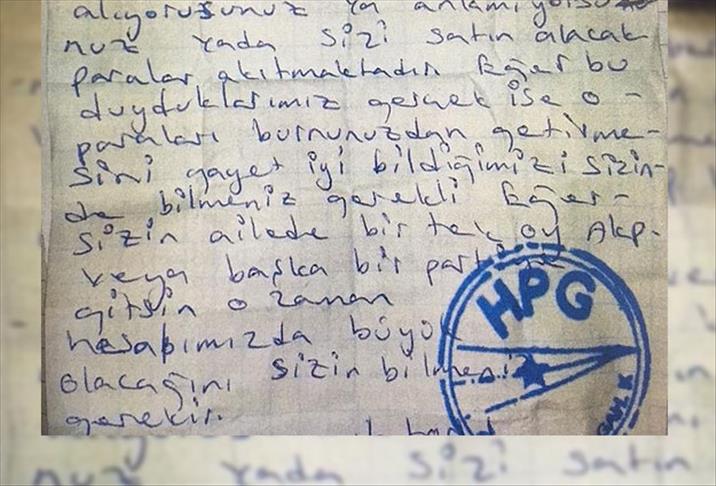 alıyorsunuz ya anlamıyorsu
nuz yada sizi satın alacak
paralar akıtmaktadır Eğer bu
duyduklarımız gerçek ise o -
paraları burnunuzdan getirme-
sini gayet iyi bildiğimizi sizin-
de bilmeniz gerekli Eğer-
sizin ailede bir tek oy Akp-
veya başka bir partiye
gitsin o zaman
hesabımızda büyük
olacağını sizin bilmeniz
gerekir.
HPG